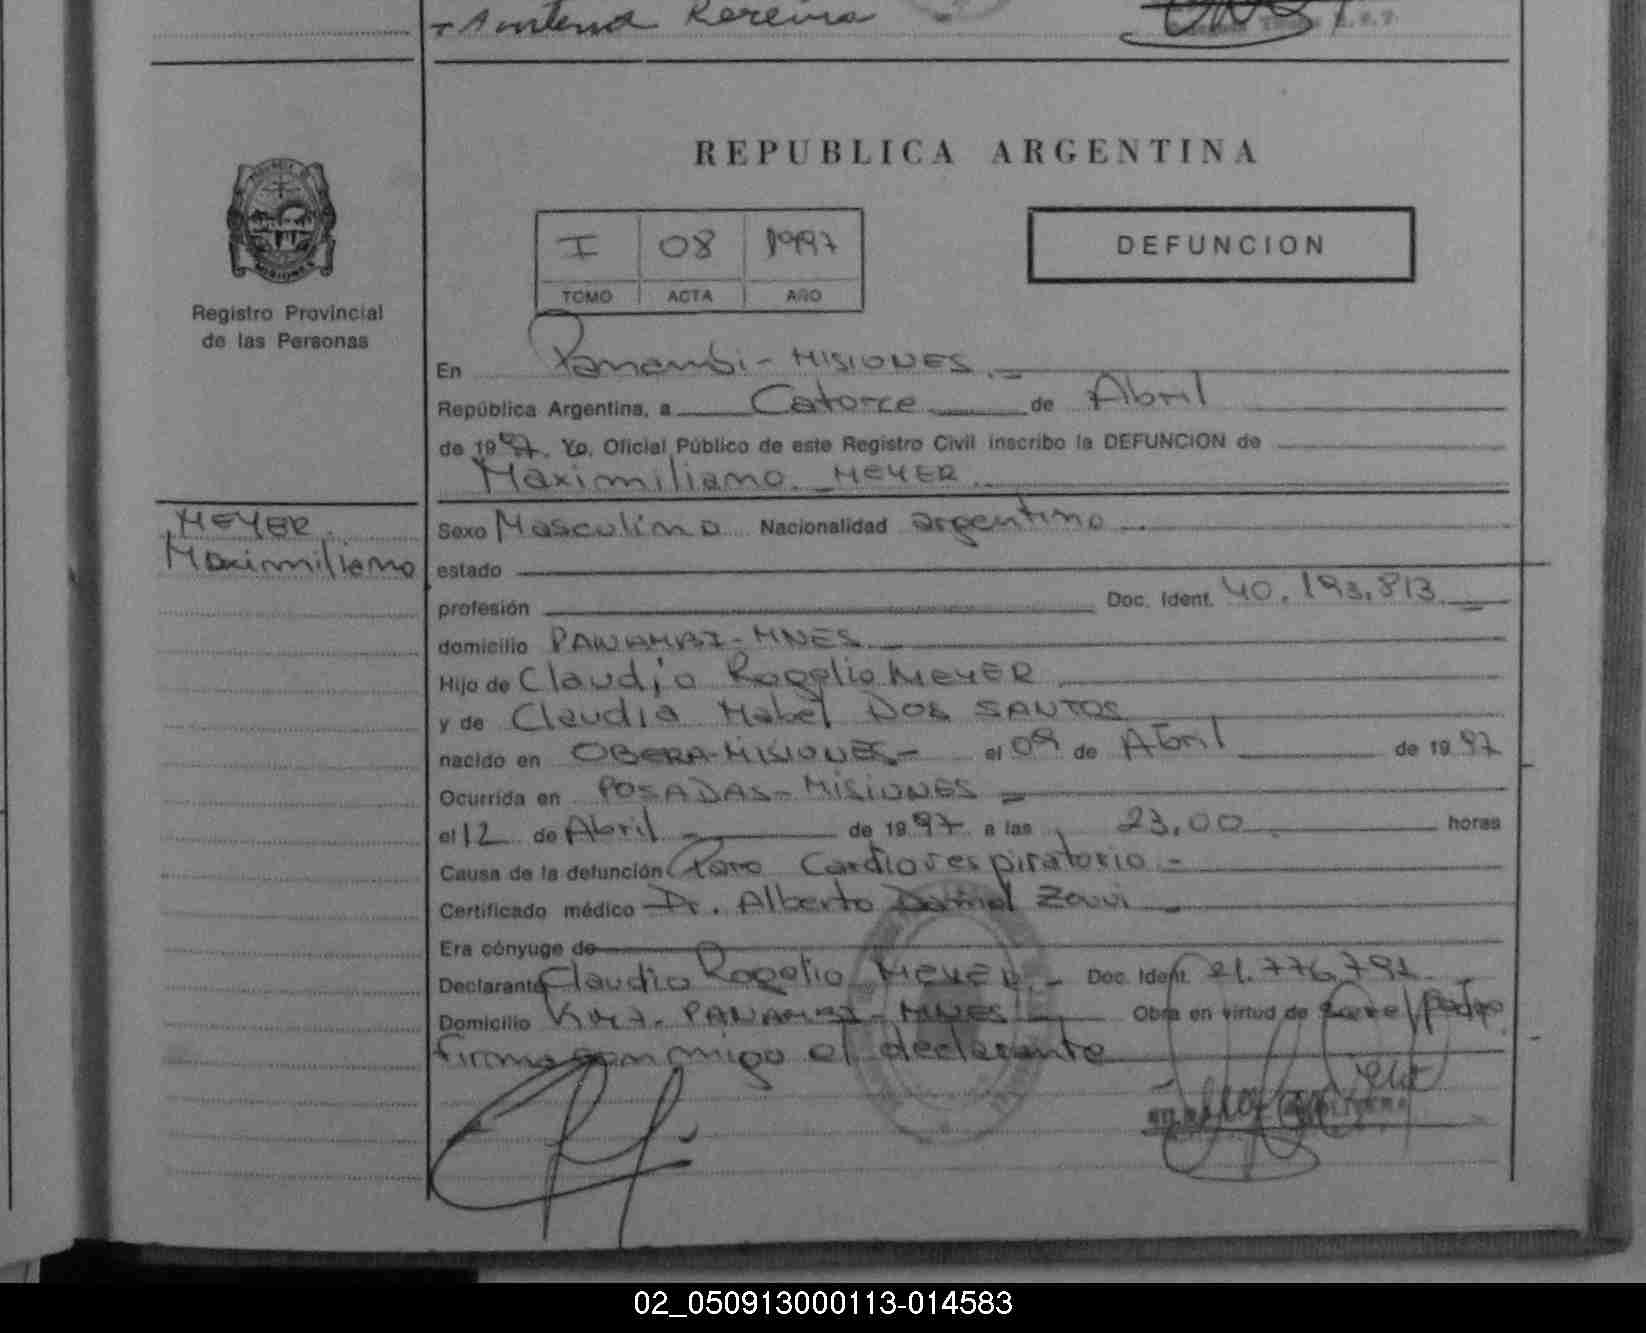 Pereira
REPUBLICA ARGENTINA
I 08 1997
TOMO ACTA AÑO
DEFUNCION
Registro Provincial
de las Personas
En Panambi - MISIONES
República Argentina, a Catorce de Abril
de 1997. Yo, Oficial Público de este Registro Civil inscribo la DEFUNCION de
Maximiliano MEYER
MEYER
Maximiliano
Sexo Masculino Nacionalidad argentino
estado
profesión Doc. Ident. 40.193.813
domicilio PANAMBI - MNES
Hijo de Claudio Rogelio MEYER
y de Claudia Mabel DOS SANTOS
nacido en OBERA-MISIONES- el 09 de Abril de 1997
Ocurrida en POSADAS - MISIONES
el 12 de Abril de 1997 a las 23,00 horas
Causa de la defunción Paro Cardiorespiratorio -
Certificado médico Dr. Alberto Daniel
Era cónyuge de
Declarante Claudio Rogelio MEYER - Doc. Ident. 21.776.791
Domicilio PANAMBI - MNES Obra en virtud de
firma conmigo el declarante
02_050913000113-014583